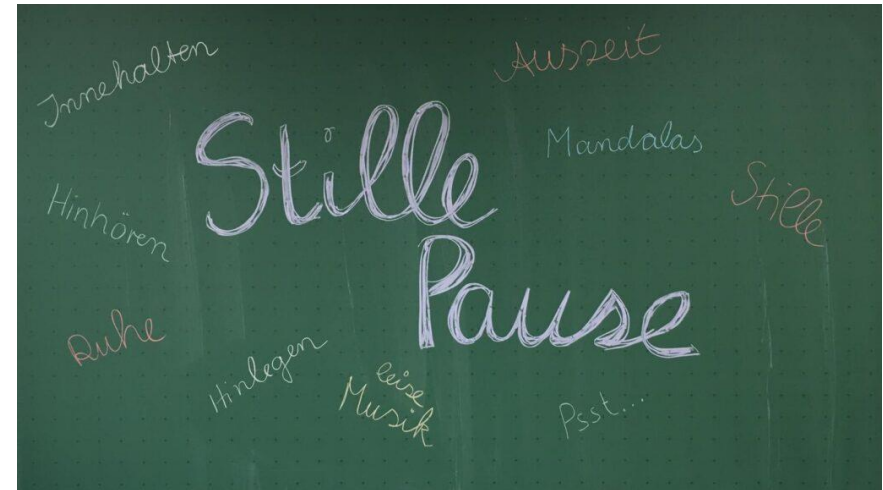 Innehalten
Auszeit
Stille
Mandalas
Stille
Hinhören
Pause
Ruhe
Hinlegen
leise
Musik
Psst...